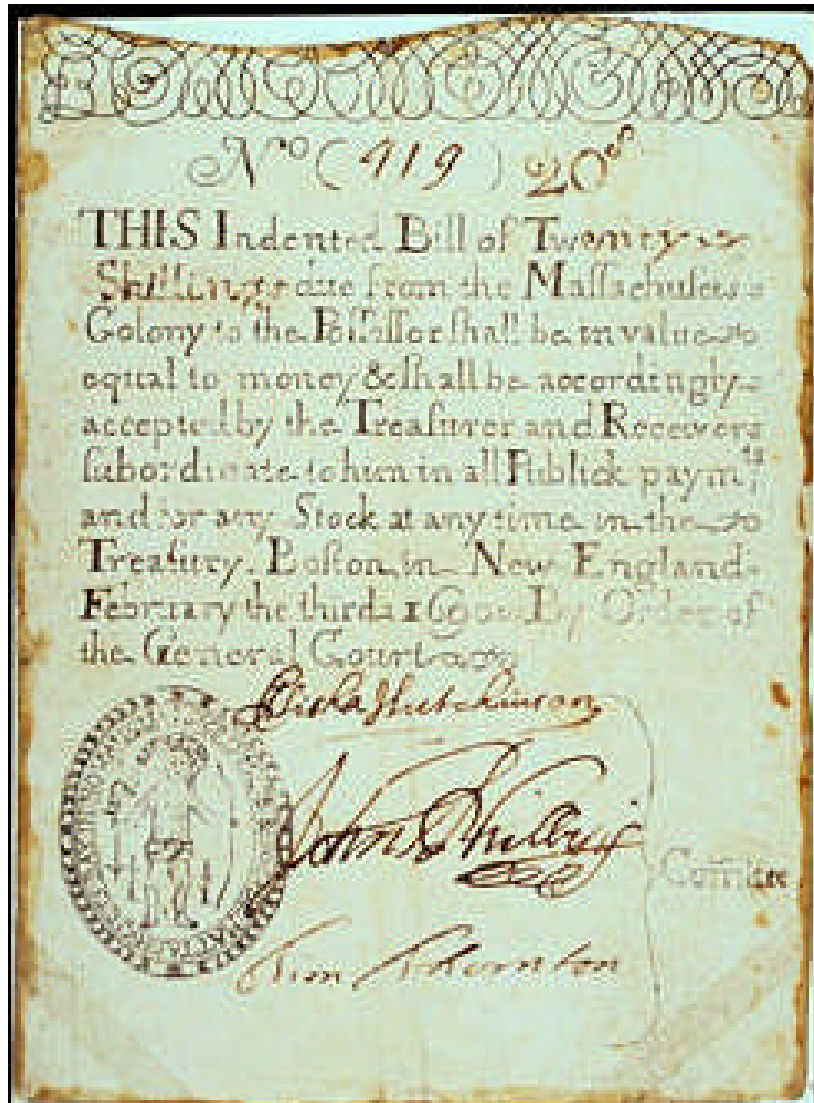 No (919) 20s
THIS Indented Bill of Twenty
Shillings due from the Maſſachuſets
Colony to the Poſſeſſor ſhall be in value
equal to money & ſhall be accordingly
accepted by the Treaſurer and Receivers
ſubordinate to him in all Publick paymts
and for any Stock at any time in the
Treaſury. Boſton in New England
February the third 1690. By Order of
the General Court
Eliſha Hutchinson
John Phillips
Tim Thornton
Comitee